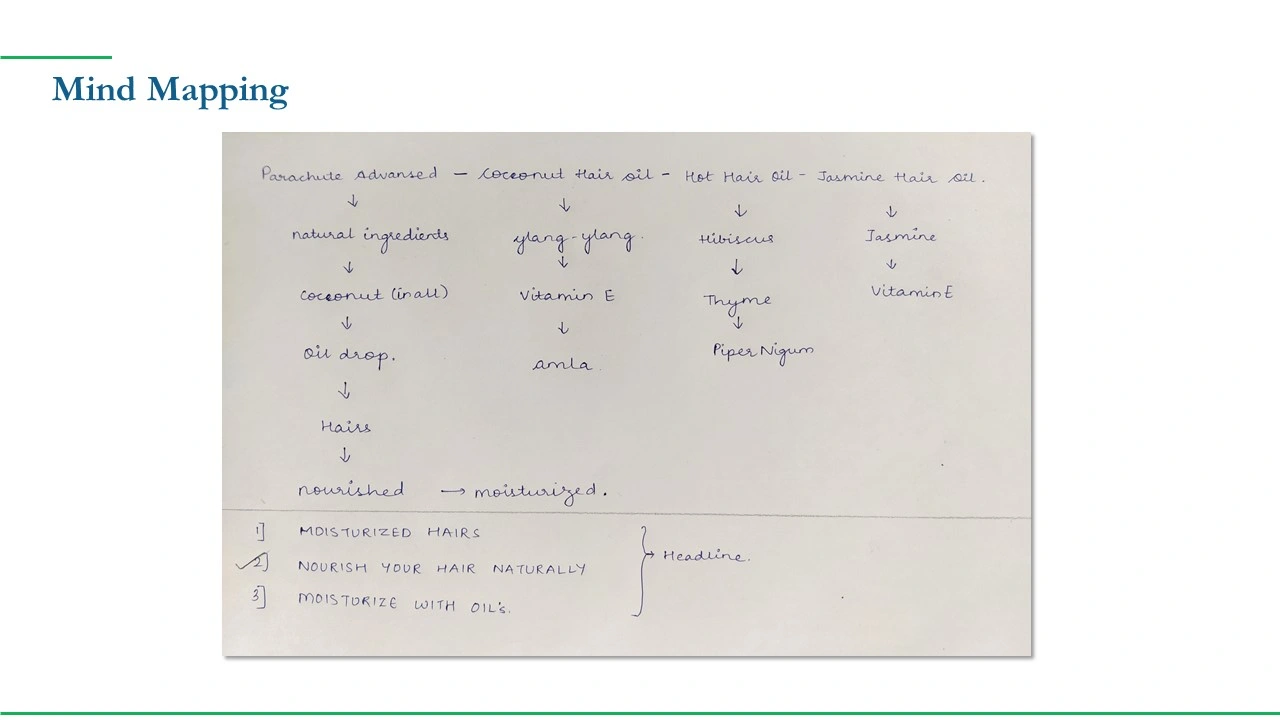 Mind Mapping
Parachute Advansed — Coconut Hair oil - Hot Hair Oil - Jasmine Hair Oil.
↓ ↓ ↓ ↓
natural ingredients ylang-ylang. Hibiscus Jasmine
↓ ↓ ↓ ↓
Coconut (in all) Vitamin E Thyme Vitamin E
↓ ↓ ↓
Oil drop. amla Piper Nigum
↓
Hairs
↓
nourished → moisturized.
1] MOISTURIZED HAIRS
✓2] NOURISH YOUR HAIR NATURALLY → Headline.
3] MOISTURIZE WITH OIL's.